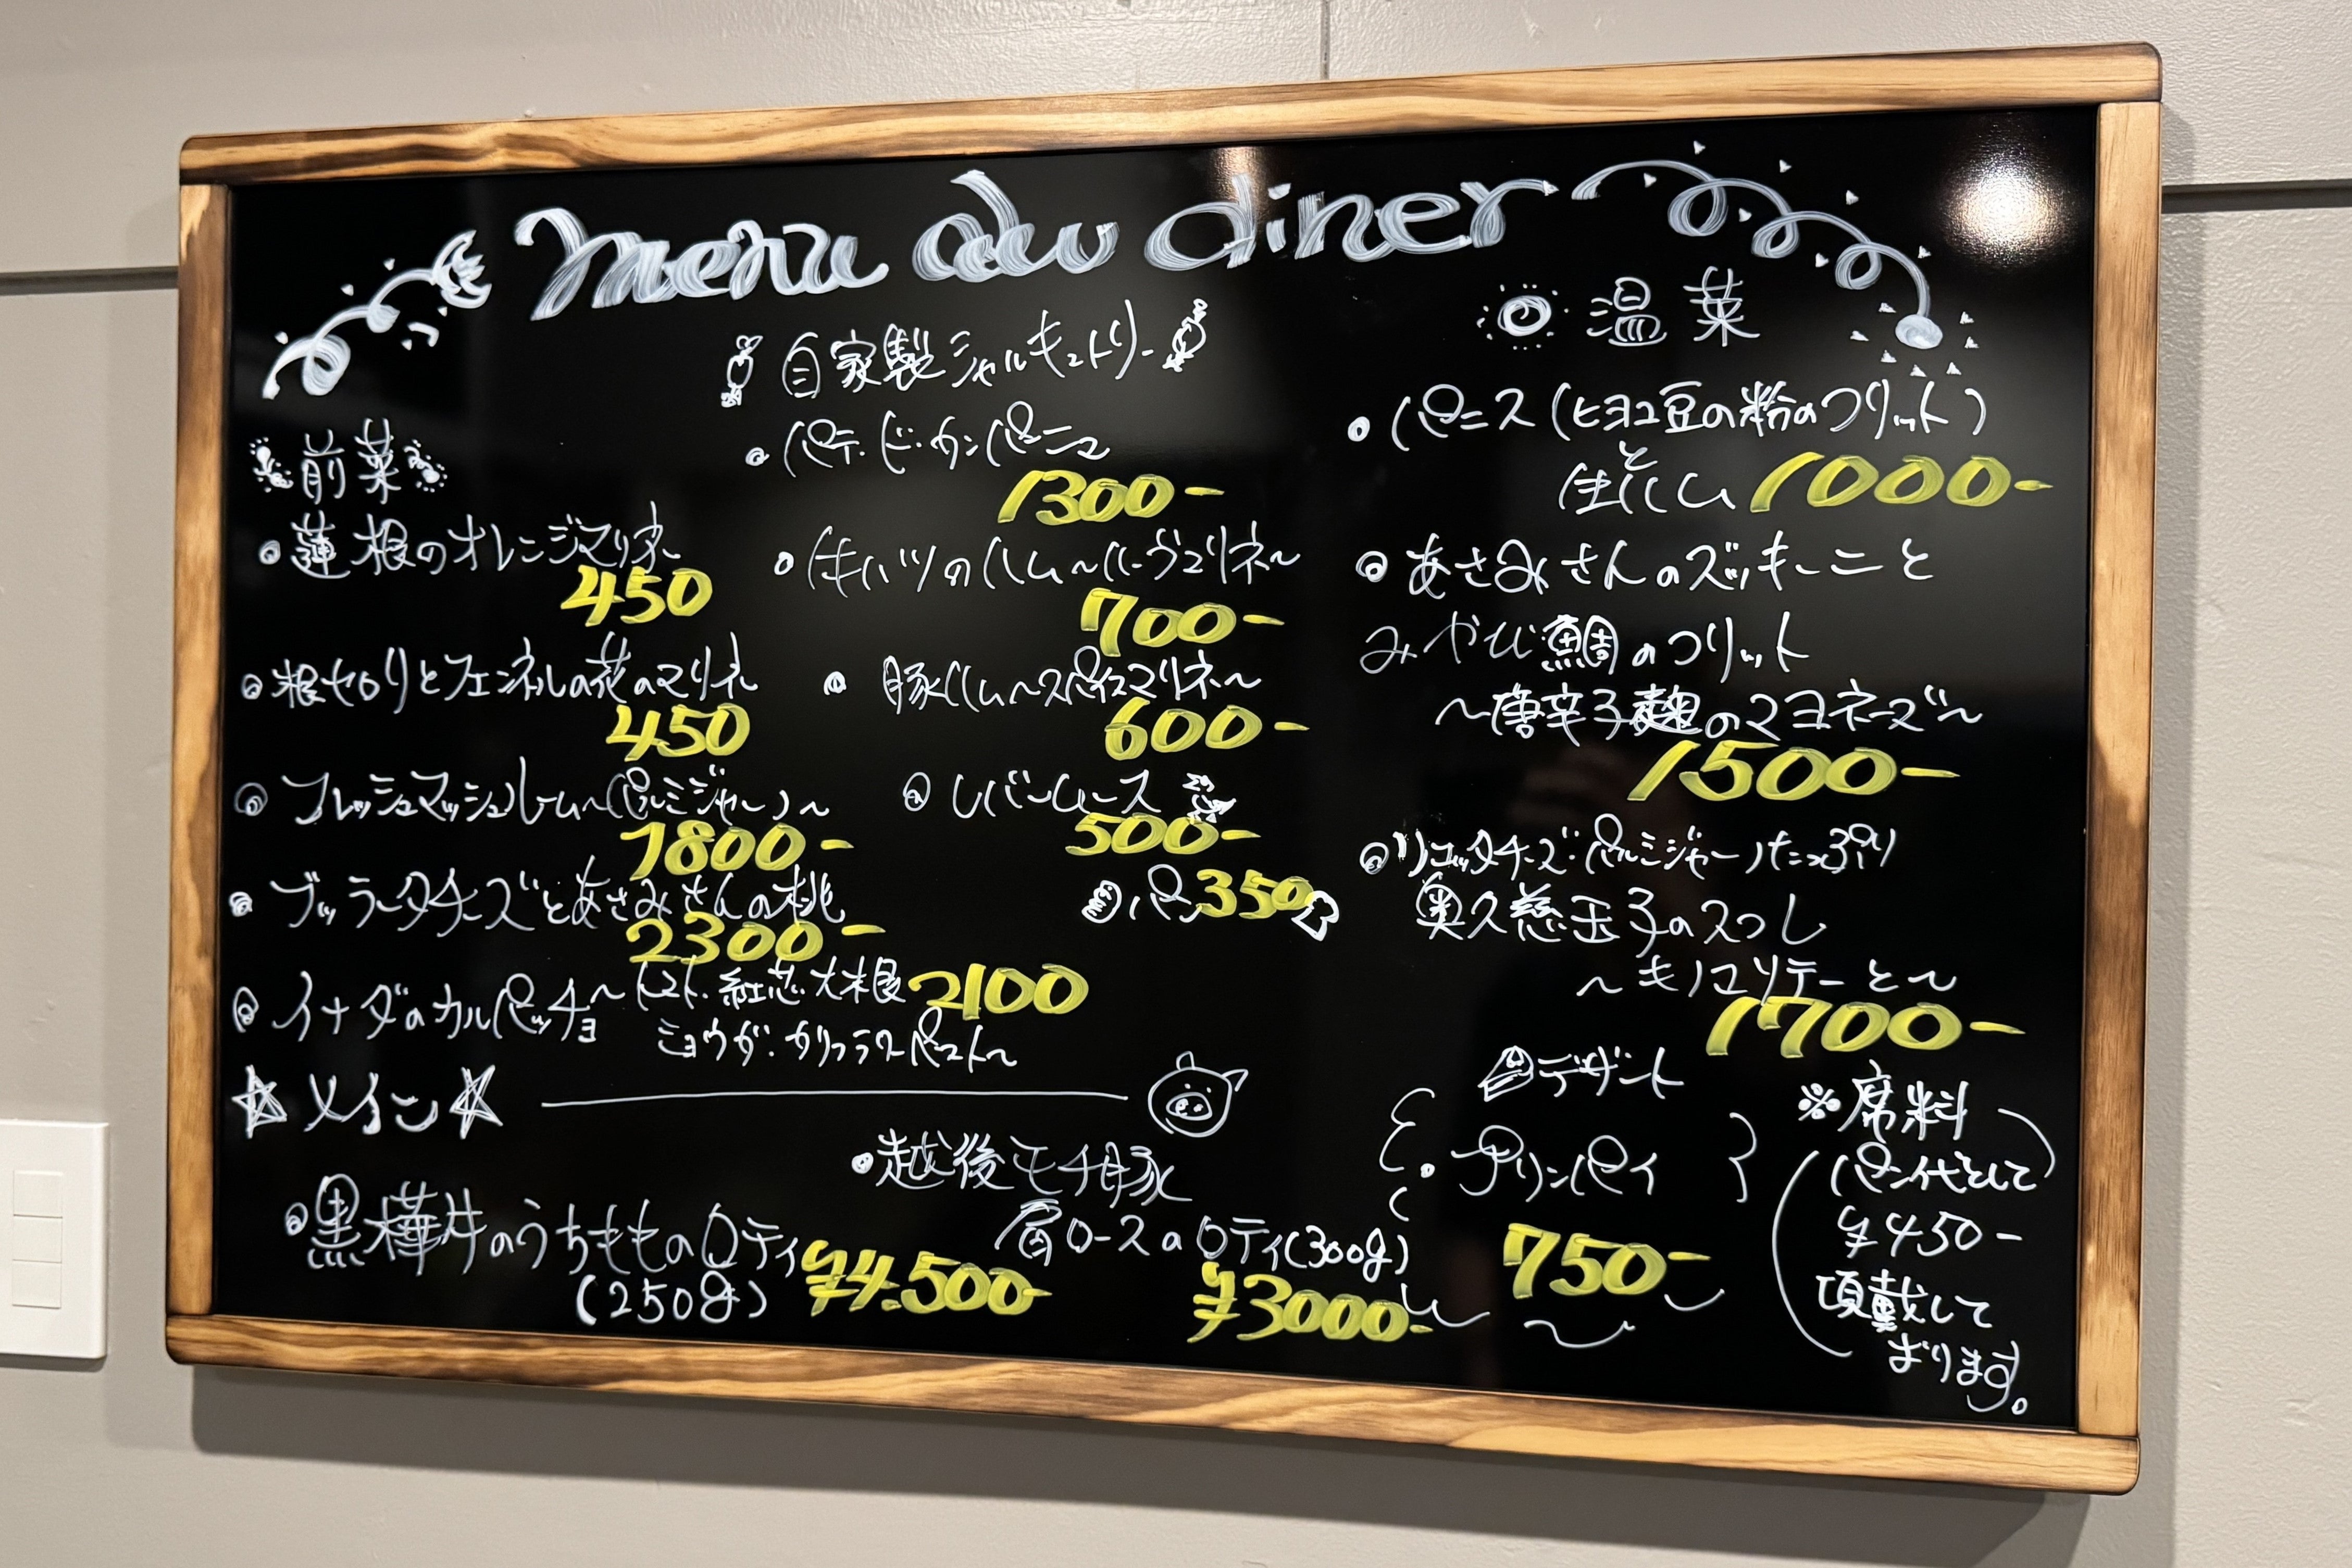 menu du diner
前菜
・蓮根のオレンジマリネ
450
・根セロリとフェンネルの花のマリネ
450
・フレッシュマッシュルーム〜パルミジャーノ〜
1800-
・ブッラータチーズとあさみさんの桃
2300-
・イナダのカルパッチョ〜トマト・紅芯大根 2100
ミョウガ・カリフラワーペースト〜
自家製シャルキュトリー
・パテ・ド・カンパーニュ
1300-
・牛ハツのハム〜ハーブマリネ〜
700-
・豚ハム〜スパイスマリネ〜
600-
・レバームース
500-
パン 350
温菜
・パニス(ヒヨコ豆の粉のフリット)
と
生ハム 1000-
・あさみさんのズッキーニと
みやび鯛のフリット
〜唐辛子麹のマヨネーズ〜
1500-
・リコッタチーズ・パルミジャーノたっぷり
奥久慈玉子のスフレ
〜キノコソテーと〜
1700-
☆メイン☆
・黒樺牛のうちもものロティ
(250g) ¥4.500-
・越後モチ豚
肩ロースのロティ(300g)
¥3000-
デザート
・プリンパイ
750-
※席料
(パン代として)
¥450-
頂戴して
おります。